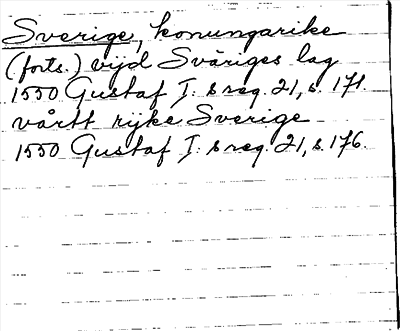 Sverige, konungarike
(forts.) vijd Sväriges lag
1550 Gustaf I:s reg. 21, s. 171.
vårtt rijke Sverige
1550 Gustaf I:s reg. 21, s. 176.